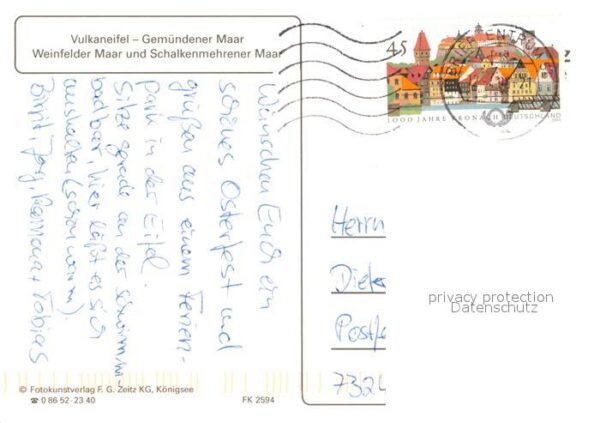 Vulkaneifel – Gemündener Maar
Weinfelder Maar und Schalkenmehrener Maar
Wünschen Euch ein
schönes Osterfest und
grüßen aus einem Ferien-
park in der Eifel.
Sitze gerade an der schwimm-
badbar, hier läßt es sich
aushalten (schön warm).
Birgit, Jörg, Ramona + Tobias
© Fotokunstverlag F. G. Zeitz KG, Königsee
☎ 0 86 52 - 23 40
FK 2594
45
BRIEFZENTRUM
1000 JAHRE KRONACH DEUTSCHLAND
Herrn
Dieter
Postfa
7324
privacy protection
Datenschutz